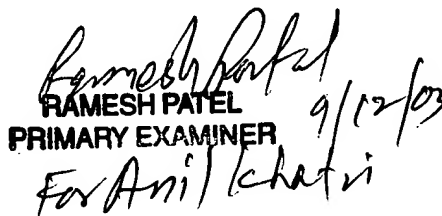 Ramesh Patel
RAMESH PATEL 9/12/03
PRIMARY EXAMINER
For Anil Khatri